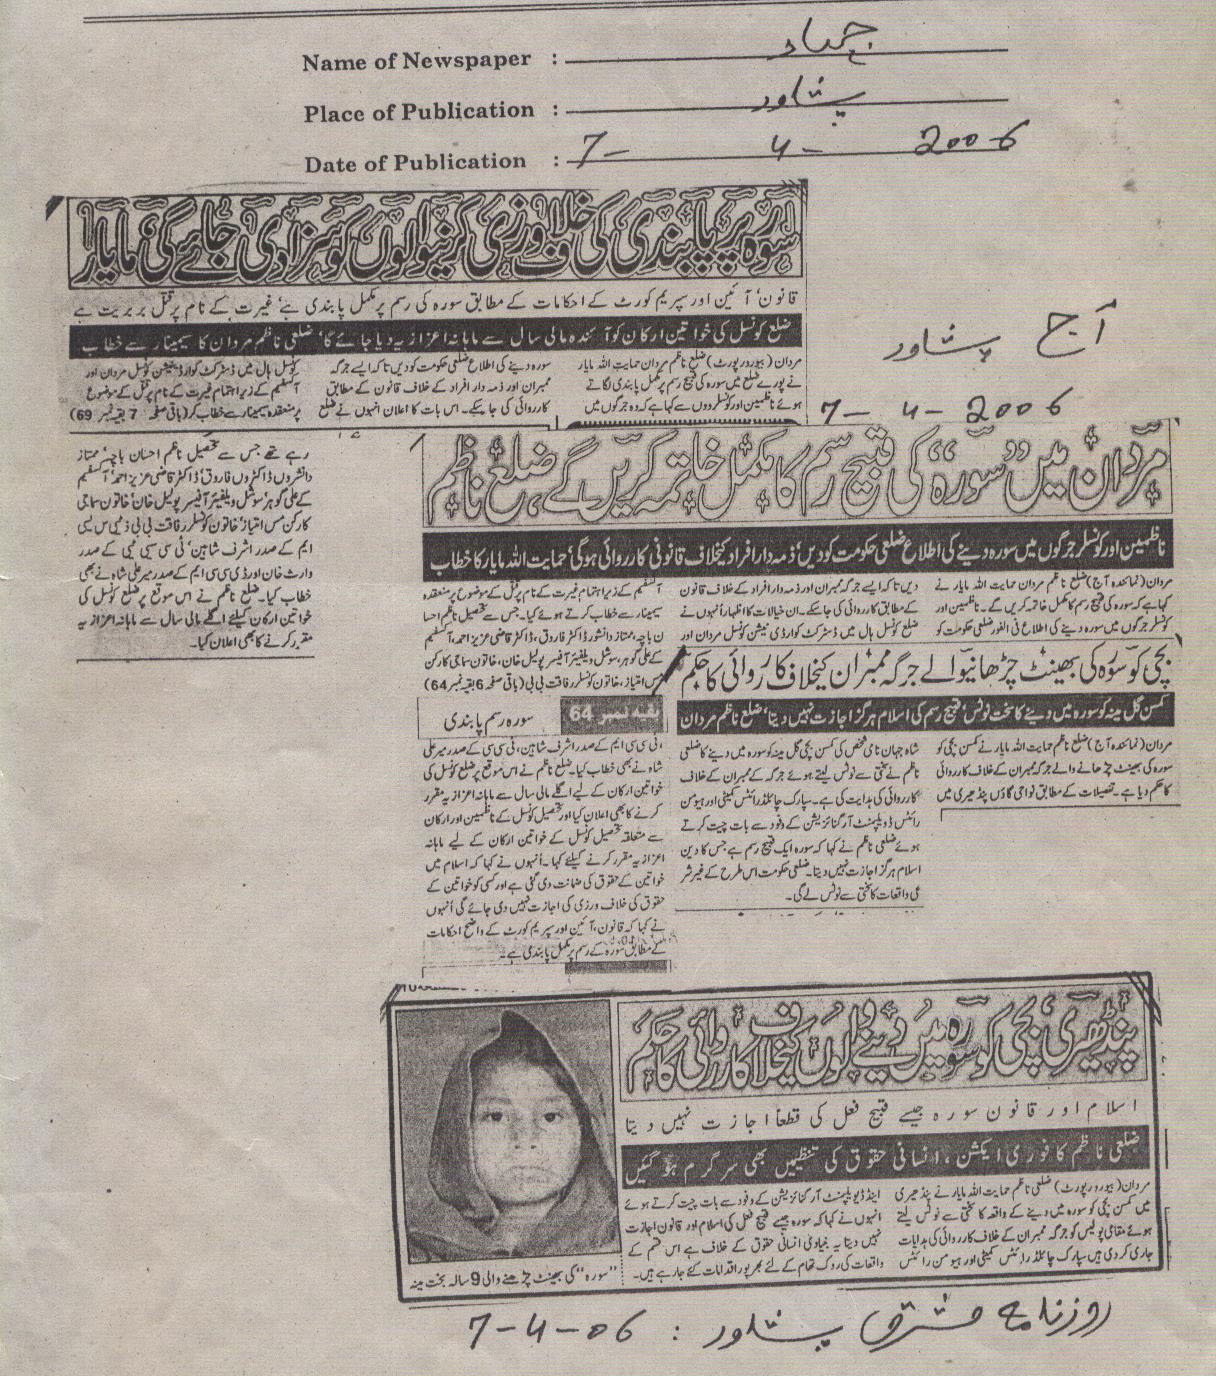 Name of Newspaper : جہاد
Place of Publication : پشاور
Date of Publication : 7- 4- 2006
سورہ پر پابندی کی خلاف ورزی کرنیوالوں کو سزا دی جائے گی، مایار
قانون‘ آئین اور سپریم کورٹ کے احکامات کے مطابق سورہ کی رسم پر مکمل پابندی ہے‘ غیرت کے نام پر قتل بربریت ہے
ضلع کونسل کی خواتین ارکان کو آئندہ مالی سال سے ماہانہ اعزازیہ دیا جائے گا‘ ضلعی ناظم مردان کا سیمینار سے خطاب
مردان (بیورورپورٹ) ضلع ناظم مردان حمایت اللہ مایار
نے پورے ضلع میں سورہ کی قبیح رسم پر مکمل پابندی لگاتے
ہوئے ناظمین اور کونسلروں سے کہا ہے کہ وہ جرگوں میں
سورہ دینے کی اطلاع ضلعی حکومت کو دیں تاکہ ایسے جرگہ
ممبران اور ذمہ دار افراد کے خلاف قانون کے مطابق
کارروائی کی جاسکے۔ اس بات کا اعلان انہوں نے ضلع
کونسل ہال میں ڈسٹرکٹ کوآرڈینیشن کونسل مردان اور
آکسفیم کے زیر اہتمام غیرت کے نام پر قتل کے موضوع
پر منعقدہ سیمینار سے خطاب کر (باقی صفحہ 7 بقیہ نمبر 69)
رہے تھے جس سے تحصیل ناظم احسان باچہ‘ ممتاز
دانشوروں ڈاکٹروں فاروق‘ ڈاکٹر قاضی عزیز احمد‘ آکسفیم
کے علی گوہر‘ سوشل ویلفیئر آفیسر پولیل خان‘ خاتون سماجی
کارکن مس امتیاز‘ خاتون کونسلر رفاقت بی بی‘ ڈی سی سی
ایم کے صدر اشرف شاہین‘ ٹی سی سی ٹی کے صدر
وارث خان اور ڈی سی سی ایم کے صدر میر علی شاہ نے بھی
خطاب کیا۔ ضلع ناظم نے اس موقع پر ضلع کونسل کی
خواتین ارکان کیلئے اگلے مالی سال سے ماہانہ اعزازیہ
مقرر کرنے کا بھی اعلان کیا۔
آج پشاور
7- 4- 2006
مردان میں ”سورہ“ کی قبیح رسم کا مکمل خاتمہ کریں گے، ضلع ناظم
ناظمین اور کونسلر جرگوں میں سورہ دینے کی اطلاع ضلعی حکومت کو دیں‘ ذمہ دار افراد کیخلاف قانونی کارروائی ہوگی‘ حمایت اللہ مایار کا خطاب
مردان (نمائندہ آج) ضلع ناظم مردان حمایت اللہ مایار نے
کہا ہے کہ سورہ کی قبیح رسم کا مکمل خاتمہ کریں گے۔ ناظمین اور
کونسلر جرگوں میں سورہ دینے کی اطلاع فی الفور ضلعی حکومت کو
دیں تاکہ ایسے جرگہ ممبران اور ذمہ دار افراد کے خلاف قانون
کے مطابق کارروائی کی جاسکے۔ ان خیالات کا اظہار انہوں نے
ضلع کونسل ہال میں ڈسٹرکٹ کوآرڈی نیشن کونسل مردان اور
آکسفیم کے زیر اہتمام غیرت کے نام پر قتل کے موضوع پر منعقدہ
سیمینار سے خطاب کرتے ہوئے کیا۔ جس سے تحصیل ناظم احسا
ن باچہ، ممتاز دانشور ڈاکٹر فاروق، ڈاکٹر قاضی عزیز احمد، آکسفیم
کے علی گوہر، سوشل ویلفیئر آفیسر پولیل خان، خاتون سماجی کارکن
مس امتیاز، خاتون کونسلر رفاقت بی بی (باقی صفحہ 6 بقیہ نمبر 64)
بقیہ نمبر 64 سورہ رسم پابندی
، ٹی سی سی ایم کے صدر اشرف شاہین، ٹی سی سی کے صدر میر علی
شاہ نے بھی خطاب کیا۔ ضلع ناظم نے اس موقع پر ضلع کونسل کی
خواتین ارکان کے لیے اگلے مالی سال سے ماہانہ اعزازیہ مقرر
کرنے کا بھی اعلان کیا اور تحصیل کونسل کے ناظمین اور ارکان
سے متعلقہ تحصیل کونسل کے خواتین ارکان کے لیے ماہانہ
اعزازیہ مقرر کرنے کیلئے کہا۔ انہوں نے کہا کہ اسلام میں
خواتین کے حقوق کی ضمانت دی گئی ہے اور کسی کو خواتین کے
حقوق کی خلاف ورزی کی اجازت نہیں دی جائے گی انہوں
نے کہا کہ قانون، آئین اور سپریم کورٹ کے واضح احکامات
کے مطابق سورہ کے رسم پر مکمل پابندی ہے۔
بچی کو سورہ کی بھینٹ چڑھانیوالے جرگہ ممبران کیخلاف کاروائی کا حکم
کمسن گل مینہ کو سورہ میں دینے کا سخت نوٹس‘ قبیح رسم کی اسلام ہرگز اجازت نہیں دیتا‘ ضلع ناظم مردان
مردان (نمائندہ آج) ضلع ناظم حمایت اللہ مایار نے کمسن بچی کو
سورہ کی بھینٹ چڑھانے والے جرگہ ممبران کے خلاف کارروائی
کا حکم دیا ہے۔ تفصیلات کے مطابق نواحی گاؤں پنڈھیری میں
شاہ جہان نامی شخص کی کمسن بچی گل مینہ کو سورہ میں دینے کا ضلعی
ناظم نے سختی سے نوٹس لیتے ہوئے جرگہ کے ممبران کے خلاف
کارروائی کی ہدایت کی ہے۔ سپارک چائلڈ رائٹس کمیٹی اور ہیومن
رائٹس ڈویلپمنٹ آرگنائزیشن کے وفود سے بات چیت کرتے
ہوئے ضلعی ناظم نے کہا کہ سورہ ایک قبیح رسم ہے جس کا دین
اسلام ہرگز اجازت نہیں دیتا۔ ضلعی حکومت اس طرح کے غیر شر
عی واقعات کا سختی سے نوٹس لے گی۔
پنڈھیری‘ بچی کو سورہ میں دینے والوں کیخلاف کارروائی کا حکم
اسلام اور قانون سورہ جیسے قبیح فعل کی قطعاً اجازت نہیں دیتا
ضلعی ناظم کا فوری ایکشن، انسانی حقوق کی تنظیمیں بھی سرگرم ہو گئیں
مردان (بیورورپورٹ) ضلعی ناظم حمایت اللہ مایار نے پنڈھیری
میں کمسن بچی کو سورہ میں دینے کے واقعہ کا سختی سے نوٹس لیتے
ہوئے مقامی پولیس کو جرگہ ممبران کے خلاف کارروائی کی ہدایات
جاری کر دی ہیں سپارک چائلڈ رائٹس کمیٹی اور ہیومن رائٹس
اینڈ ڈویلپمنٹ آرگنائزیشن کے وفود سے بات چیت کرتے ہوئے
انہوں نے کہا کہ سورہ جیسے قبیح فعل کی اسلام اور قانون اجازت
نہیں دیتا یہ بنیادی انسانی حقوق کے خلاف ہے اس قسم کے
واقعات کی روک تھام کے لئے بھرپور اقدامات کئے جا رہے ہیں۔
”سورہ“ کی بھینٹ چڑھنے والی 9 سالہ بخت مینہ
روزنامہ مشرق پشاور : 7-4-06